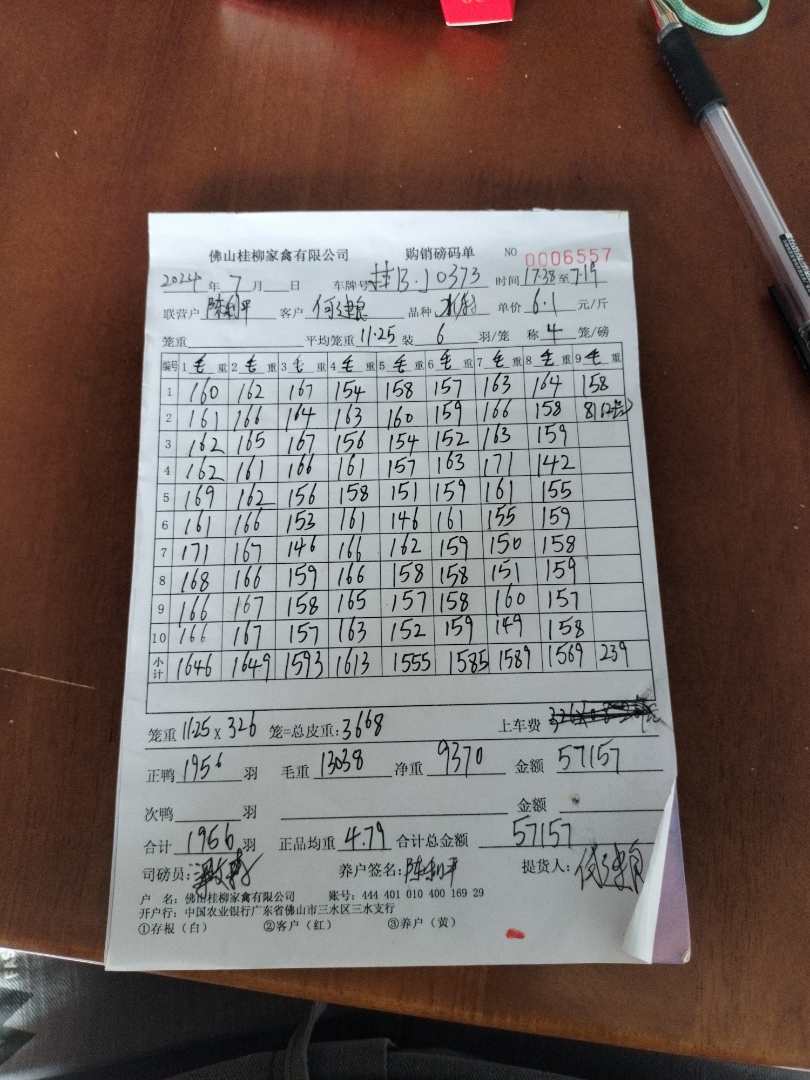 佛山桂柳家禽有限公司 购销磅码单 NO 0006557
2024年7月 日 车牌号 桂B.J0373 时间 17:38至7:19
联营户 陈利平 客户 何建良 品种 单价 6.1 元/斤
笼重 平均笼重 11.25 装 6 羽/笼 称 4 笼/磅
编号 1毛重 2毛重 3毛重 4毛重 5毛重 6毛重 7毛重 8毛重 9毛重
1 160 162 167 154 158 157 163 164 158
2 161 166 164 163 160 159 166 158 81(2笼)
3 162 165 167 156 154 152 163 159
4 162 161 166 161 157 163 171 142
5 169 162 156 158 151 159 161 155
6 161 166 153 161 146 161 155 159
7 171 167 146 166 162 159 150 158
8 168 166 159 166 158 158 151 159
9 166 167 158 165 157 158 160 157
10 166 167 157 163 152 159 149 158
小计 1646 1649 1593 1613 1555 1585 1589 1569 239
笼重 11.25 x 326 笼=总皮重: 3668 上车费
正鸭 1956 羽 毛重 13038 净重 9370 金额 57157
次鸭 羽 金额
合计 1956 羽 正品均重 4.79 合计总金额 57157
司磅员: 养户签名: 陈利平 提货人: 何建良
户 名: 佛山桂柳家禽有限公司 账号: 444 401 010 400 169 29
开户行: 中国农业银行广东省佛山市三水区三水支行
①存根(白) ②客户(红) ③养户(黄)